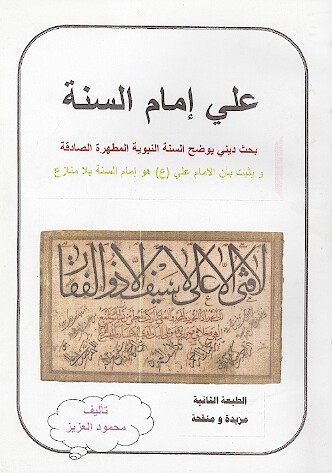 علي إمام السنة
بحث ديني يوضح السنة النبوية المطهرة الصادقة
و يثبت بان الامام علي (ع) هو إمام السنة بلا منازع
لا فتى الا علي لا سيف الا ذو الفقار
الطبعة الثانية
مزيدة و منقحة
تأليف
محمود العزيز